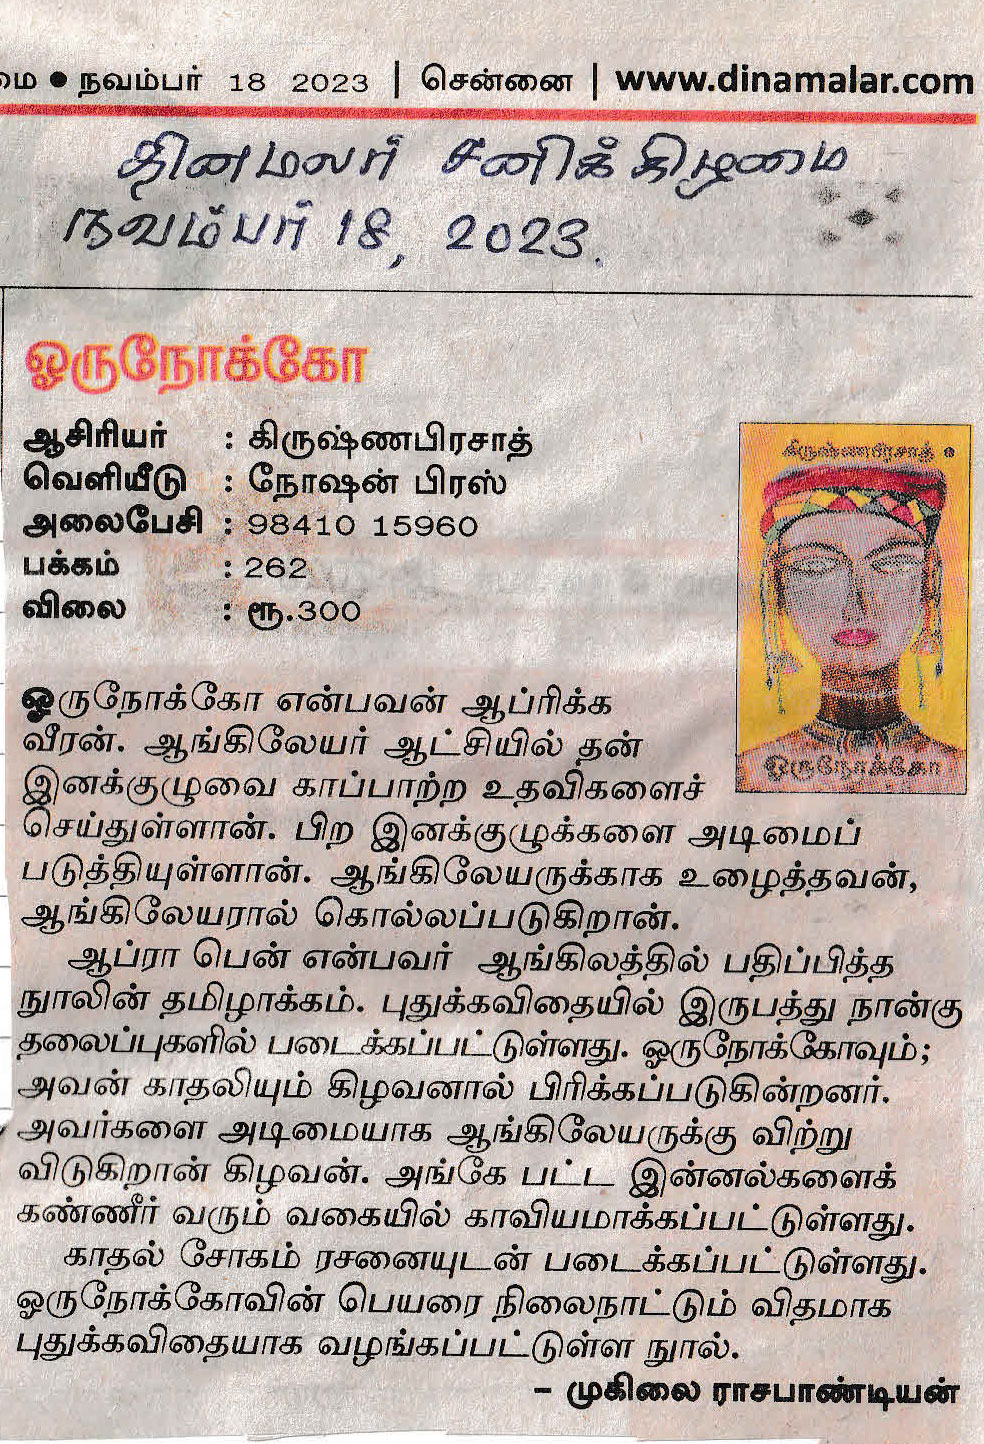 மை ● நவம்பர் 18 2023 | சென்னை | www.dinamalar.com
தினமலர் சனிக்கிழமை
நவம்பர் 18, 2023.
ஒருநோக்கோ
ஆசிரியர் : கிருஷ்ணபிரசாத்
வெளியீடு : நோஷன் பிரஸ்
அலைபேசி : 98410 15960
பக்கம் : 262
விலை : ரூ.300
கிருஷ்ணபிரசாத்
ஒருநோக்கோ
ஒருநோக்கோ என்பவன் ஆப்ரிக்க
வீரன். ஆங்கிலேயர் ஆட்சியில் தன்
இனக்குழுவை காப்பாற்ற உதவிகளைச்
செய்துள்ளான். பிற இனக்குழுக்களை அடிமைப்
படுத்தியுள்ளான். ஆங்கிலேயருக்காக உழைத்தவன்,
ஆங்கிலேயரால் கொல்லப்படுகிறான்.
ஆப்ரா பென் என்பவர் ஆங்கிலத்தில் பதிப்பித்த
நுாலின் தமிழாக்கம். புதுக்கவிதையில் இருபத்து நான்கு
தலைப்புகளில் படைக்கப்பட்டுள்ளது. ஒருநோக்கோவும்;
அவன் காதலியும் கிழவனால் பிரிக்கப்படுகின்றனர்.
அவர்களை அடிமையாக ஆங்கிலேயருக்கு விற்று
விடுகிறான் கிழவன். அங்கே பட்ட இன்னல்களைக்
கண்ணீர் வரும் வகையில் காவியமாக்கப்பட்டுள்ளது.
காதல் சோகம் ரசனையுடன் படைக்கப்பட்டுள்ளது.
ஒருநோக்கோவின் பெயரை நிலைநாட்டும் விதமாக
புதுக்கவிதையாக வழங்கப்பட்டுள்ள நுால்.
– முகிலை ராசபாண்டியன்